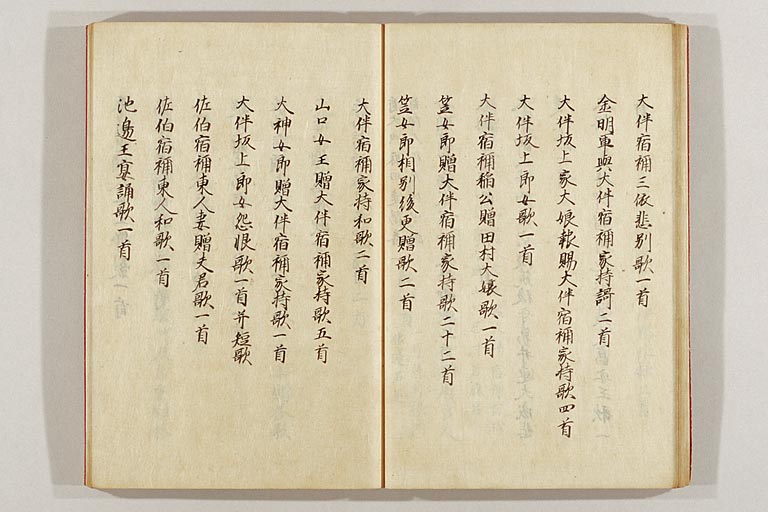 大伴宿祢三依悲別歌一首
金明軍與大伴宿祢家持謌二首
大伴坂上家大娘報賜大伴宿祢家持歌四首
大伴坂上郎女歌一首
大伴宿祢稲公贈田村大娘歌一首
笠女郎贈大伴宿祢家持歌二十二首
笠女郎相別後更贈歌二首
大伴宿祢家持和歌二首
山口女王贈大伴宿祢家持歌五首
大神女郎贈大伴宿祢家持歌一首
大伴坂上郎女怨恨歌一首并短歌
佐伯宿祢東人妻贈夫君歌一首
佐伯宿祢東人和歌一首
池邊王宴誦歌一首